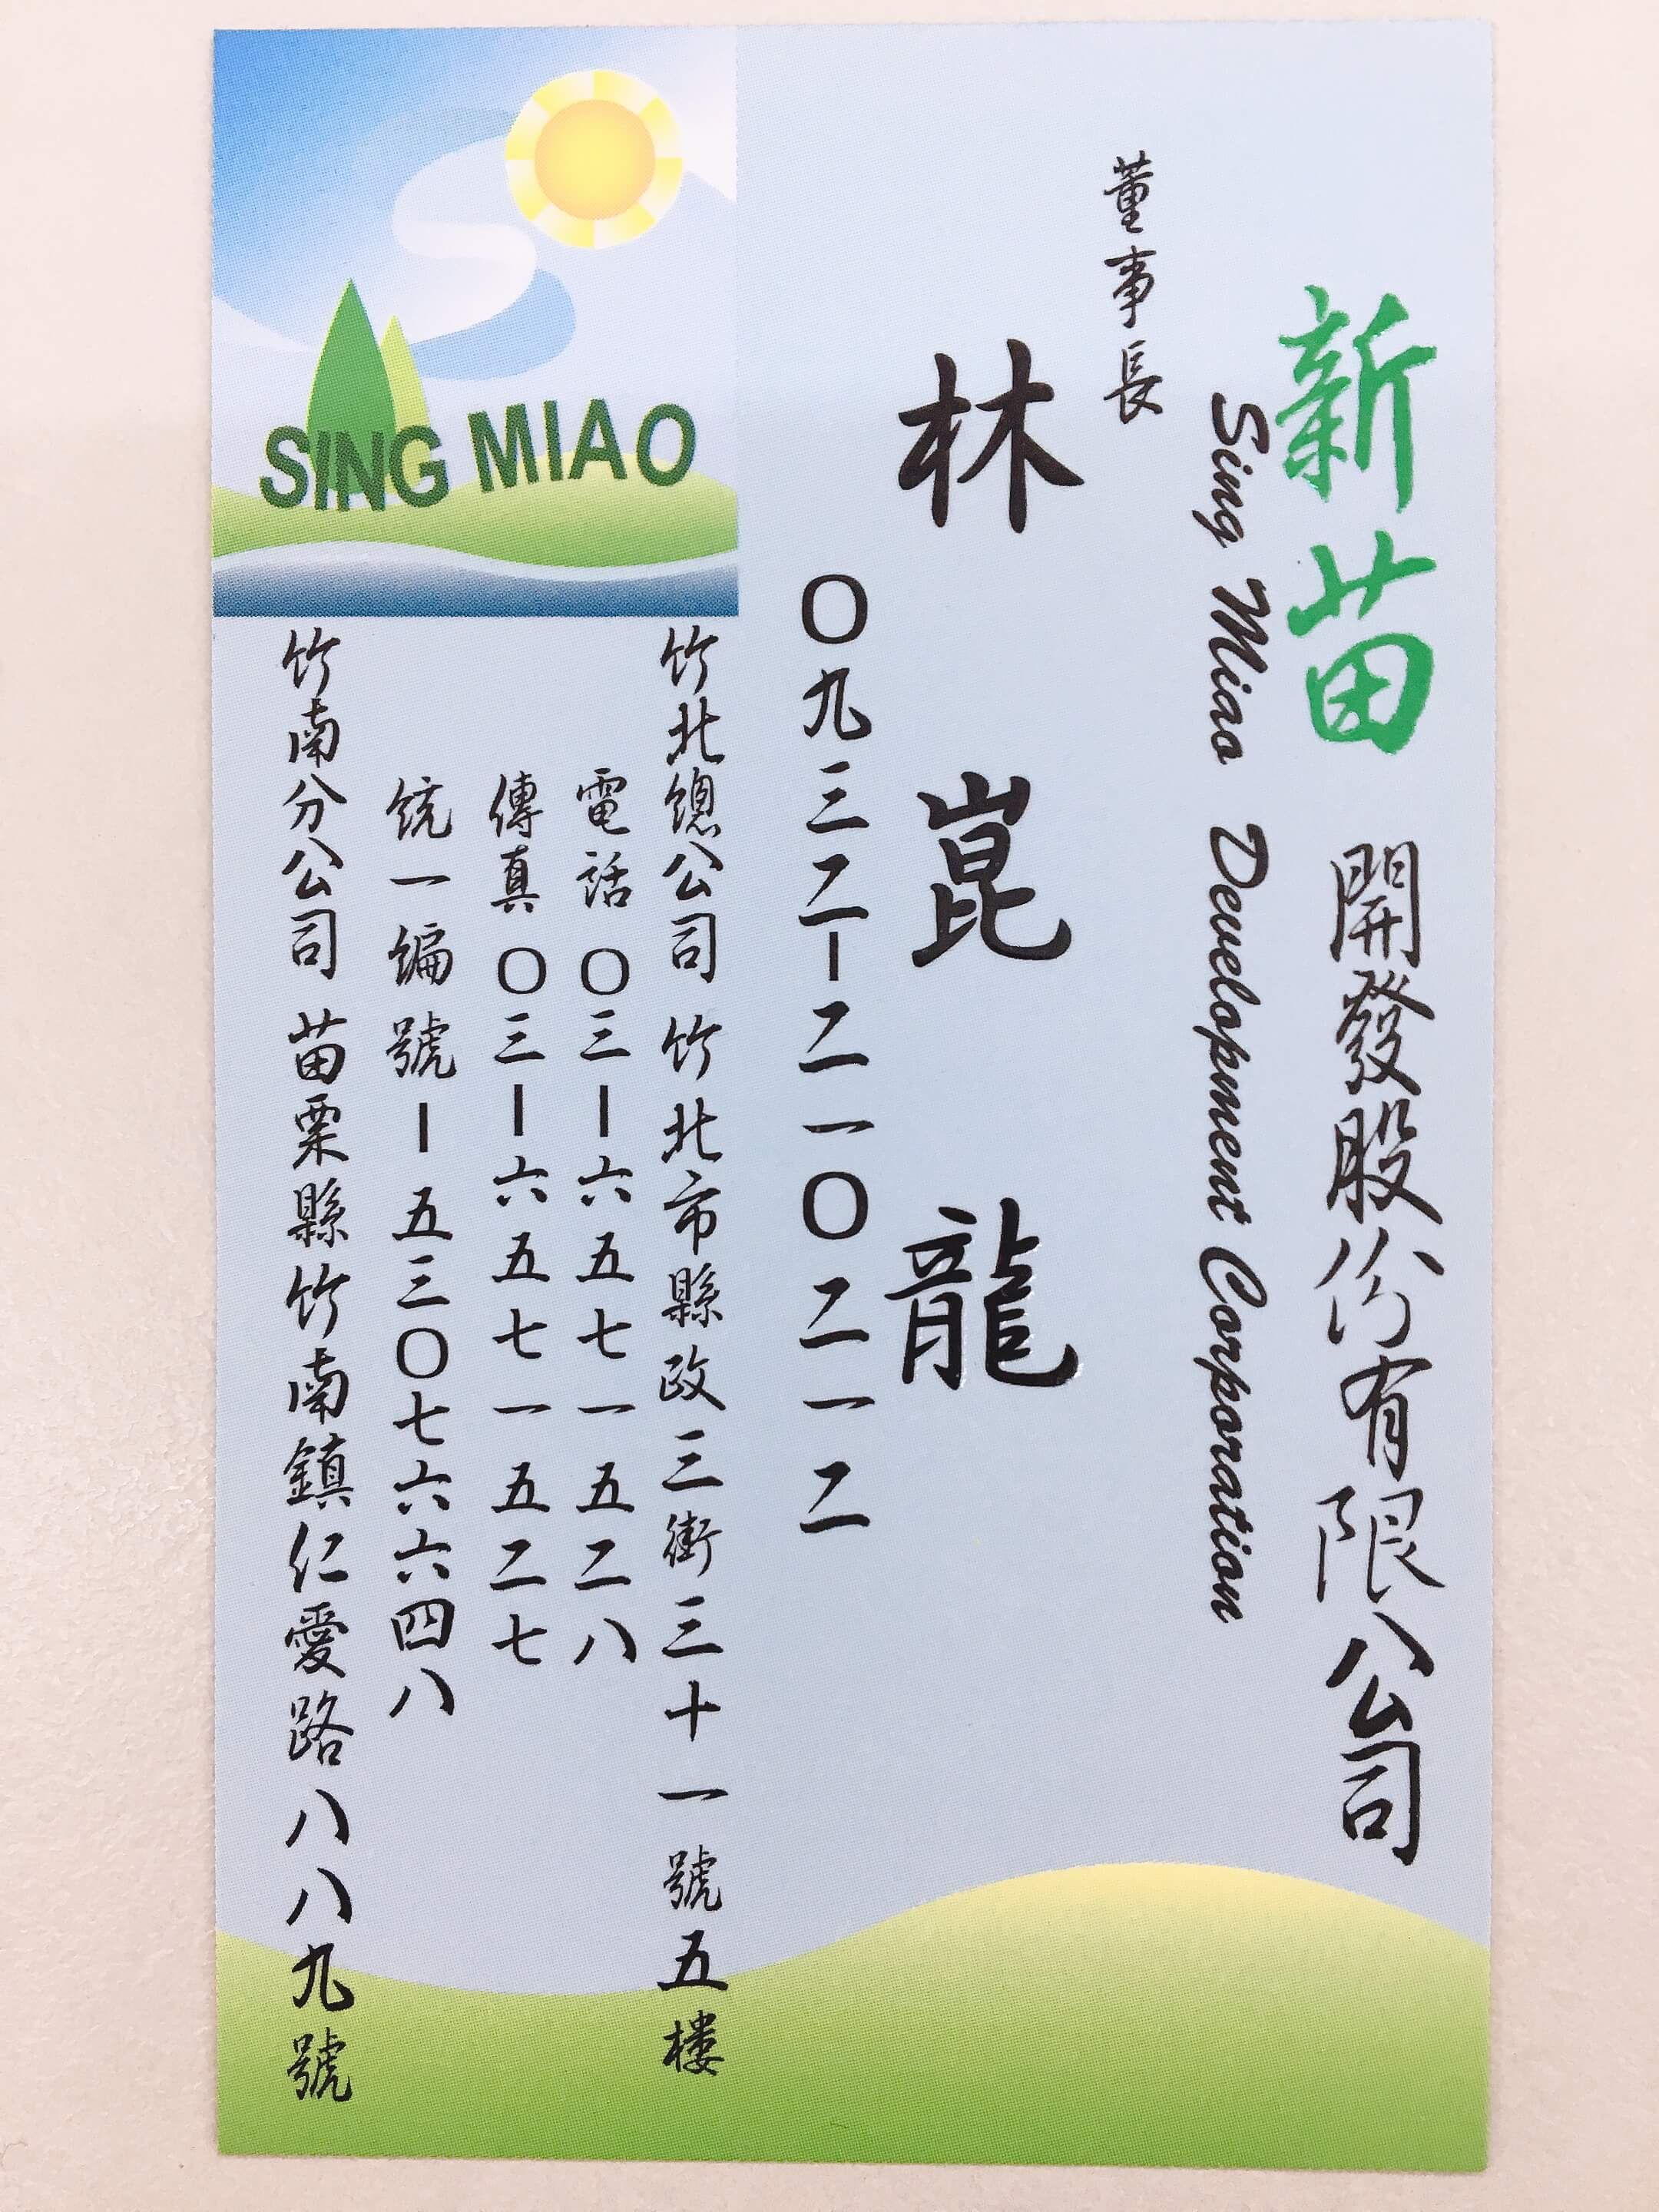 新苗開發股份有限公司
Sing Miao Development Corporation
董事長
林崑龍
〇九三二-二一〇二一二
竹北總公司 竹北市縣政三街三十一號五樓
電話〇三-六五七一五二八
傳真〇三-六五七一五二七
統一編號-五三〇七六六四八
竹南分公司 苗栗縣竹南鎮仁愛路八八九號
SING MIAO